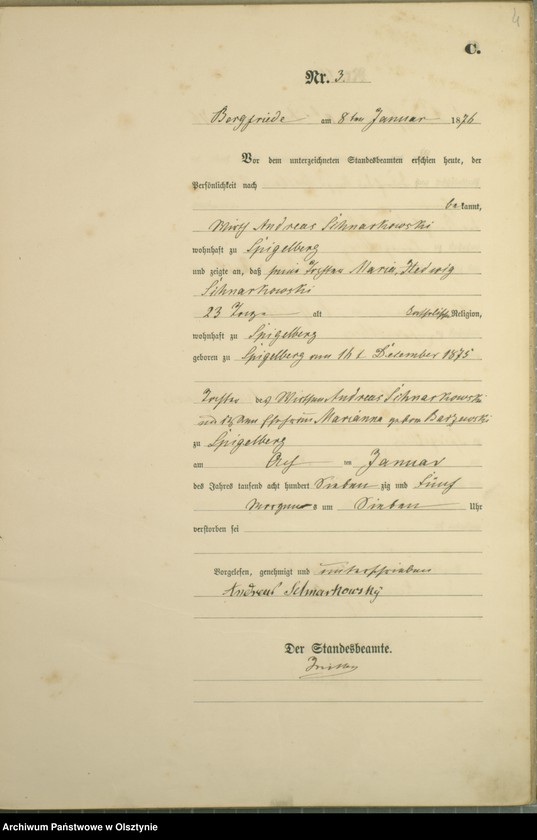 4
C.
Nr. 3.
Bergfriede am 8ten Januar 1876
Vor dem unterzeichneten Standesbeamten erschien heute, der
Persönlichkeit nach
bekannt,
Wirth Andreas Schnarkowski
wohnhaft zu Spigelberg
und zeigte an, daß seine Tochter Maria, Hedwig
Schnarkowski
23 Tage alt katholischer Religion,
wohnhaft zu Spigelberg
geboren zu Spigelberg am 16t Dezember 1875
Tochter des Wirthen Andreas Schnarkowski
und dessen Ehefrau Marianna geborn
zu Spigelberg
am Januar
des Jahres tausend acht hundert Sieben zig und Fünf
Morgens um Sieben Uhr
verstorben sei
Vorgelesen, genehmigt und unterschrieben
Andreas Schnarkowsky
Der Standesbeamte.
Archiwum Państwowe w Olsztynie